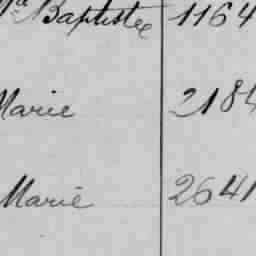 Baptiste 1164
Marie 2184
Marie 2641